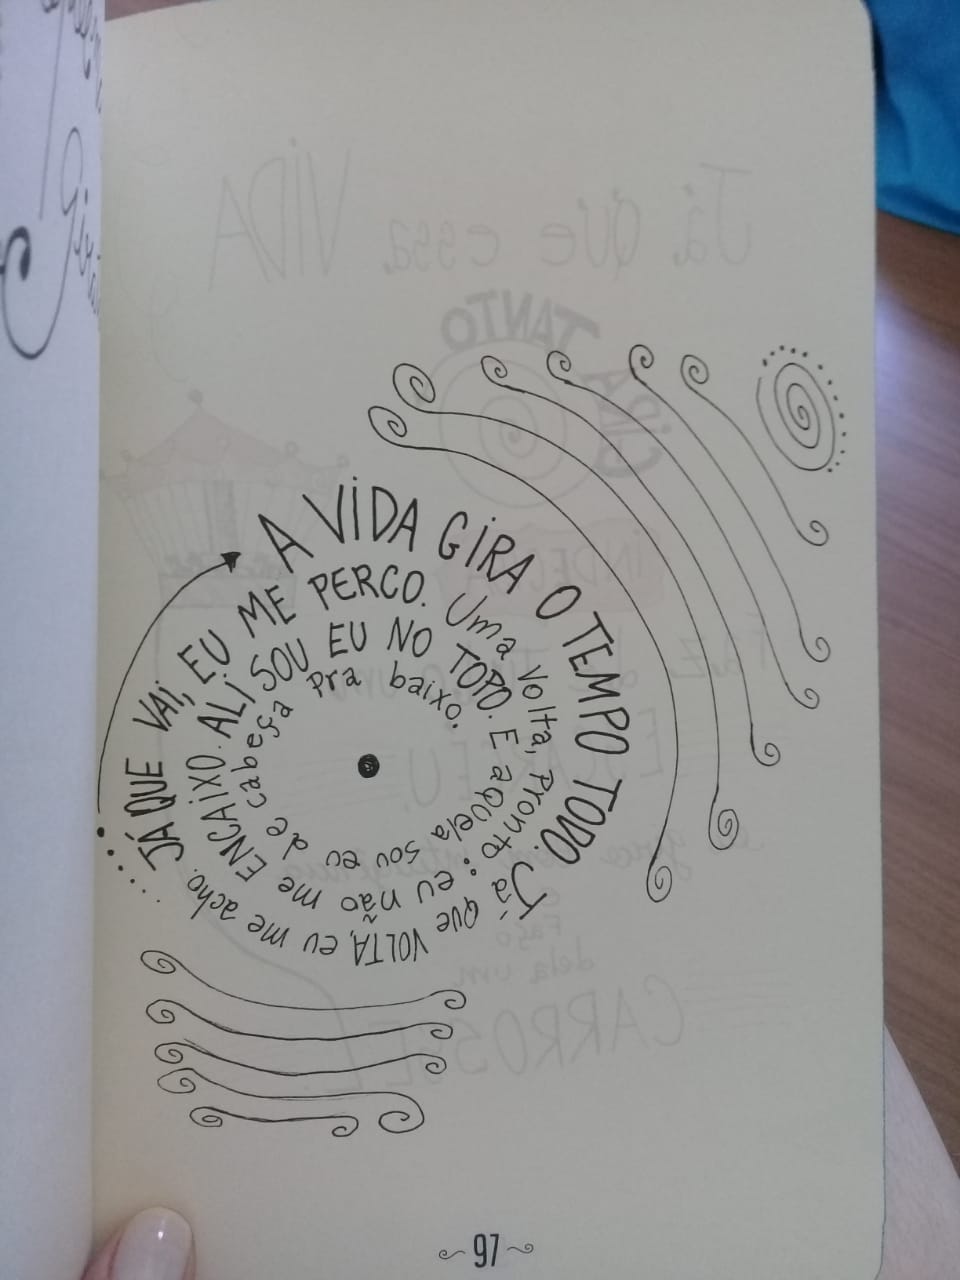 A VIDA GIRA O TEMPO TODO. Já que VOLTA, eu me acho.
JÁ QUE VAI, EU ME PERCO. Uma volta, pronto: eu não me ENCAIXO.
ALI SOU EU NO TOPO. E aquela sou eu de cabeça pra baixo.
97